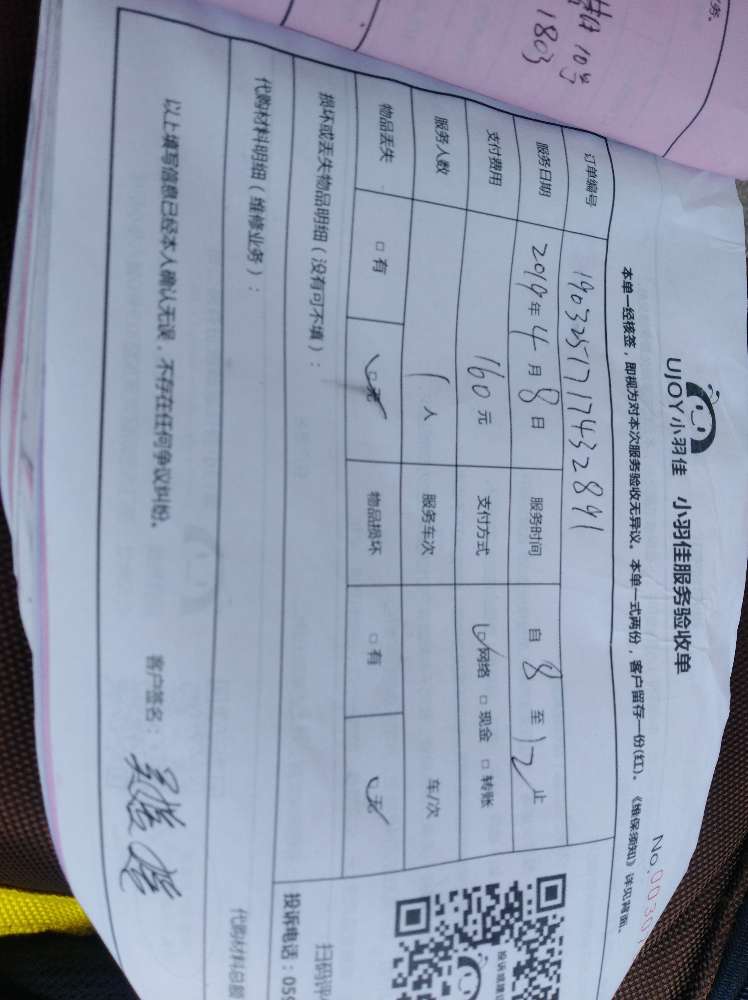 务。
10号
1803
UJOY小羽佳 小羽佳服务验收单
No.00307
本单一经核签，即视为对本次服务验收无异议。本单一式两份，客户留存一份(红)。《维保须知》详见背面。
订单编号 190325171743284
服务日期 2019年4月8日 服务时间 自8至12止
支付费用 160元 支付方式 ☑网络 □现金 □转账
服务人数 1人 服务车次 车/次
物品丢失 □有 ☑无 物品损坏 □有 ☑无
损坏或丢失物品明细（没有可不填）：
代购材料明细（维修业务）：
代购材料总额
以上填写信息已经本人确认无误，不存在任何争议纠纷。
客户签名：
扫码评
投诉电话：059